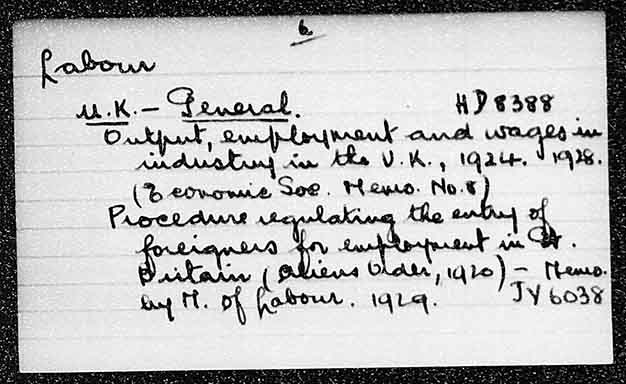 6
Labour
U.K. - General. HD 8388
Output, employment and wages in
industry in the U.K., 1924. 1928.
(Economic Soc. Memo. No. 8)
Procedure regulating the entry of
foreigners for employment in Gt.
Britain (Aliens Order, 1920) - Memo.
by M. of Labour. 1929. JV 6038